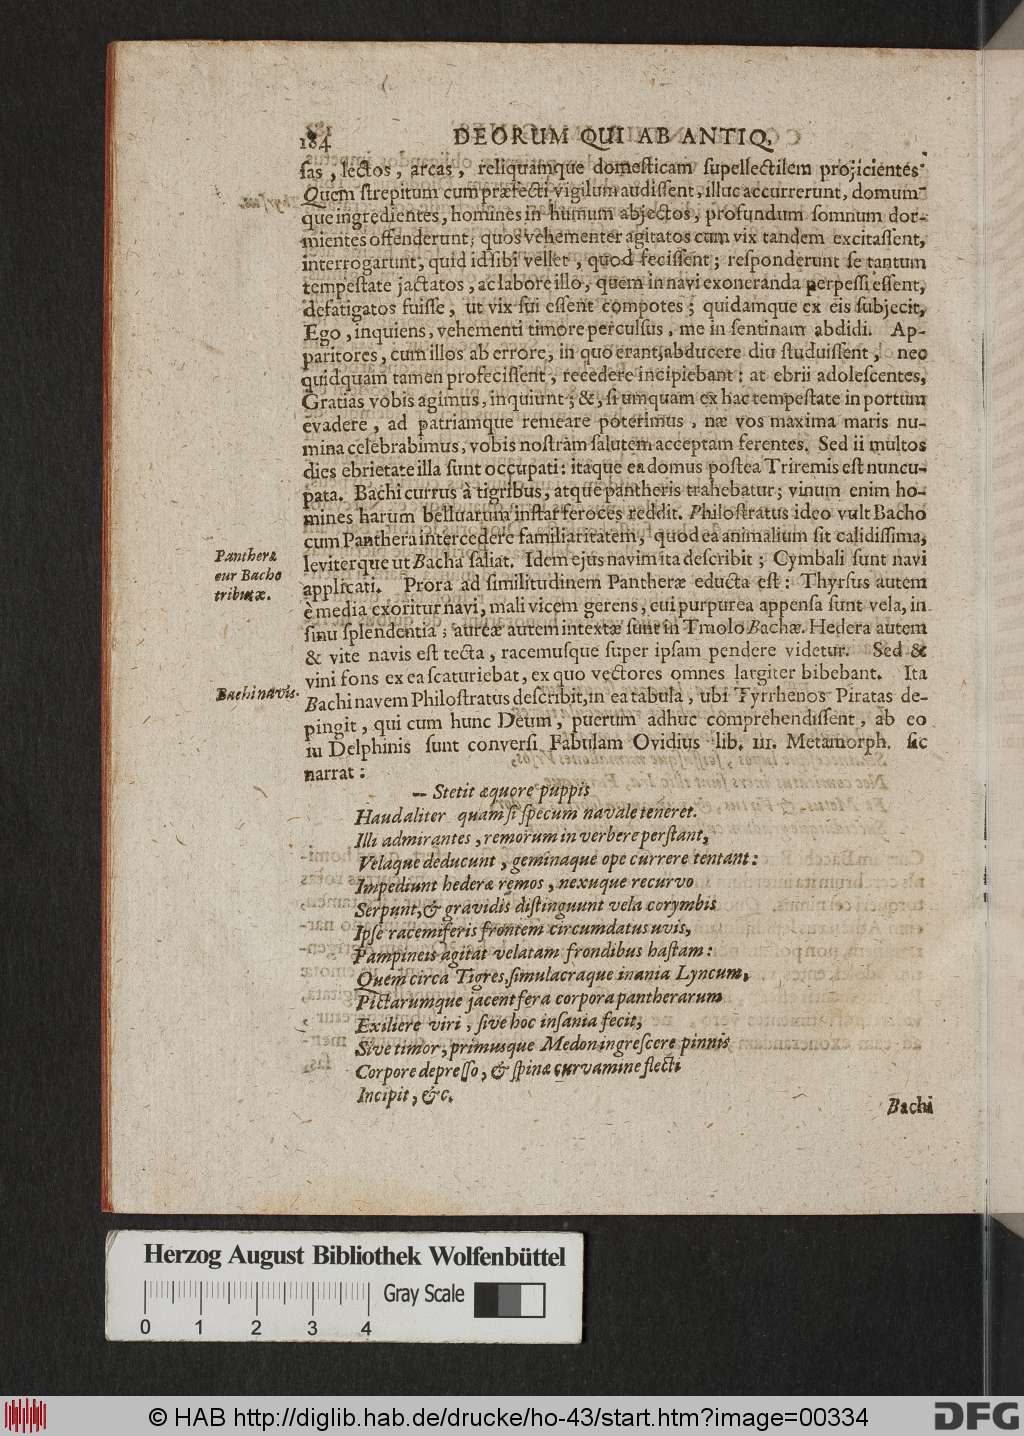 184 DEORUM QUI AB ANTIQ.
ſas, lectos, arcas, reliquamque domeſticam ſupellectilem projicientes.
Quem ſtrepitum cum præfecti vigilum audiſſent, illuc accurrerunt, domum-
que ingredientes, homines in humum abjectos, profundum ſomnum dor-
mientes offenderunt; quos vehementer agitatos cum vix tandem excitaſſent,
interrogarunt, quid id ſibi vellet, quod feciſſent; reſponderunt ſe tantum
tempeſtate jactatos, ac labore illo, quem in navi exoneranda perpeſſi eſſent,
defatigatos fuiſſe, ut vix ſui eſſent compotes; quidamque ex eis ſubjecit,
Ego, inquiens, vehementi timore perculſus, me in ſentinam abdidi. Ap-
paritores, cum illos ab errore, in quo erant, abducere diu ſtuduiſſent, nec
quidquam tamen profeciſſent, recedere incipiebant: at ebrii adoleſcentes,
Gratias vobis agimus, inquiunt; &, ſi umquam ex hac tempeſtate in portum
evadere, ad patriamque remeare poterimus, næ vos maxima maris nu-
mina celebrabimus, vobis noſtram ſalutem acceptam ferentes. Sed ii multos
dies ebrietate illa ſunt occupati: itaque ea domus poſtea Triremis eſt nuncu-
pata. Bachi currus à tigribus, atque pantheris trahebatur; vinum enim ho-
mines harum belluarum inſtar feroces reddit. Philoſtratus ideo vult Bacho
cum Panthera intercedere familiaritatem, quod ea animalium ſit calidiſſima,
leviterque ut Bacha ſaliat. Idem ejus navim ita deſcribit; Cymbali ſunt navi
Panthera
cur Bacho
tributæ.
applicati. Prora ad ſimilitudinem Pantheræ educta eſt: Thyrſus autem
è media exoritur navi, mali vicem gerens, cui purpurea appenſa ſunt vela, in
ſinu ſplendentia; aureæ autem intextæ ſunt in Tmolo Bachæ. Hedera autem
& vite navis eſt tecta, racemuſque ſuper ipſam pendere videtur. Sed &
vini fons ex ea ſcaturiebat, ex quo vectores omnes largiter bibebant. Ita
Bachi navis.
Bachi navem Philoſtratus deſcribit, in ea tabula, ubi Tyrrhenos Piratas de-
pingit, qui cum hunc Deum, puerum adhuc comprehendiſſent, ab eo
in Delphinis ſunt converſi. Fabulam Ovidius lib. III. Metamorph. ſic
narrat:
— Stetit æquore puppis
Haud aliter quam ſi ſpecum navale teneret.
Illi admirantes, remorum in verbere perſtant,
Velaque deducunt, geminaque ope currere tentant:
Impediunt hederæ remos, nexuque recurvo
Serpunt, & gravidis diſtinguunt vela corymbis
Ipſe racemiferis frontem circumdatus uvis,
Pampineis agitat velatam frondibus haſtam:
Quem circa Tigres, ſimulacraque inania Lyncum,
Pictarumque jacent fera corpora pantherarum
Exiliere viri, ſive hoc inſania fecit,
Sive timor, primusque Medon ingreſcere pinnis
Corpore depreſſo, & ſpinæ curvamine flecti
Incipit, &c.
Bachi
Herzog August Bibliothek Wolfenbüttel
Gray Scale
0 1 2 3 4
© HAB http://diglib.hab.de/drucke/ho-43/start.htm?image=00334
DFG